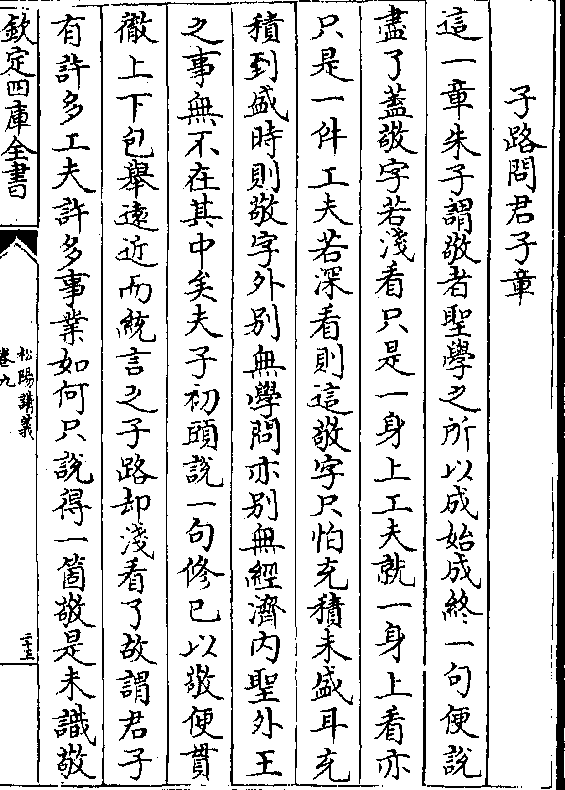 子路問君子章
這一章朱子謂敬者聖學之所以成始成終一句便說
盡了蓋敬字若淺看只是一身上工夫就一身上看亦
只是一件工夫若深看則這敬字只怕充積未盛耳充
積到盛時則敬字外別無學問亦別無經濟內聖外王
之事無不在其中矣夫子初頭說一句修已以敬便貫
徹上下包舉遠近而統言之子路却淺看了故謂君子
有許多工夫許多事業如何只說得一箇敬是未識敬
欽定四庫全書
松陽講義
卷九
三十五